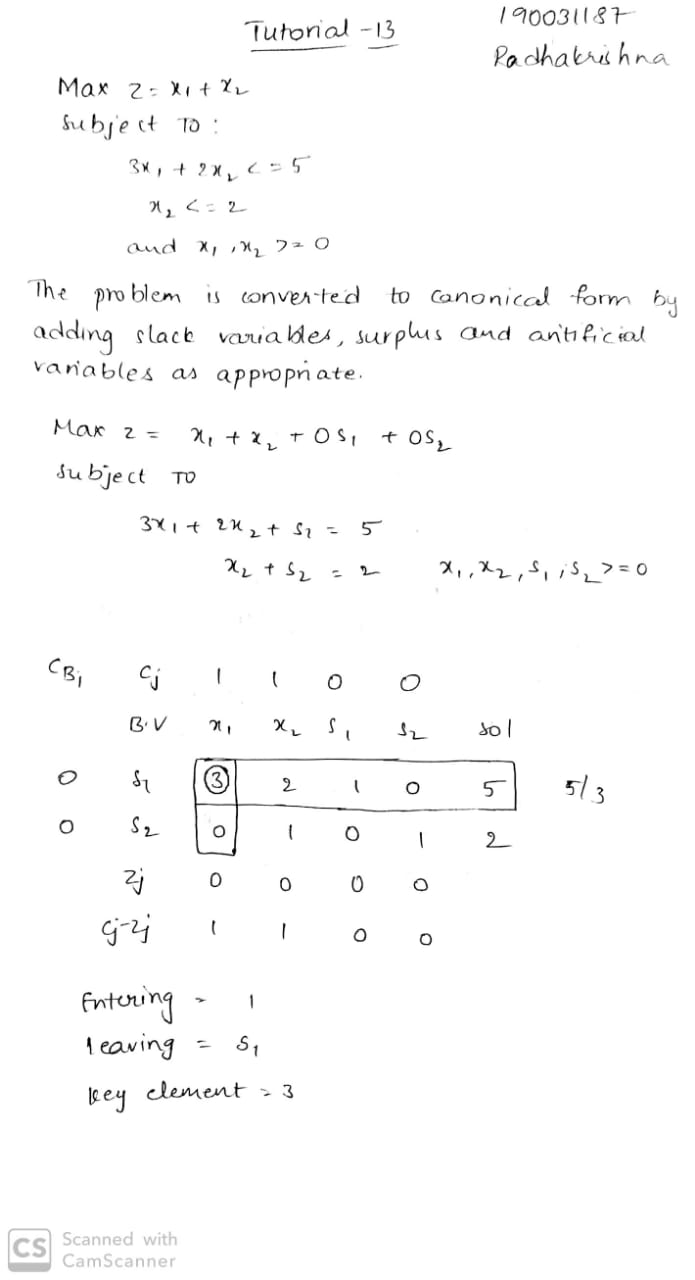 Tutorial - 13
190031187
Radhakrishna
Max z = x₁ + x₂
Subject TO :
3x₁ + 2x₂ <= 5
x₂ <= 2
and x₁, x₂ >= 0
The problem is converted to canonical form by
adding slack variables, surplus and artificial
variables as appropriate.
Max z = x₁ + x₂ + 0S₁ + 0S₂
Subject TO
3x₁ + 2x₂ + S₁ = 5
x₂ + S₂ = 2 x₁, x₂, S₁, S₂ >= 0
CBi Cj 1 1 0 0
B.V x₁ x₂ S₁ S₂ sol
0 S₁ 3 2 1 0 5 5/3
0 S₂ 0 1 0 1 2
Zj 0 0 0 0
Cj-Zj 1 1 0 0
Entering = 1
leaving = S₁
key element = 3
CS Scanned with
CamScanner